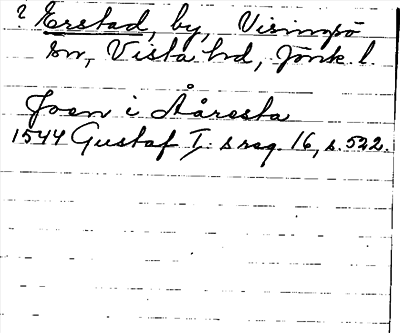 ? Erstad, by, Visingsö
sn, Vista hd, Jönk. l.
Joen iÅåresta
1544 Gustaf I:s reg. 16, s. 522.